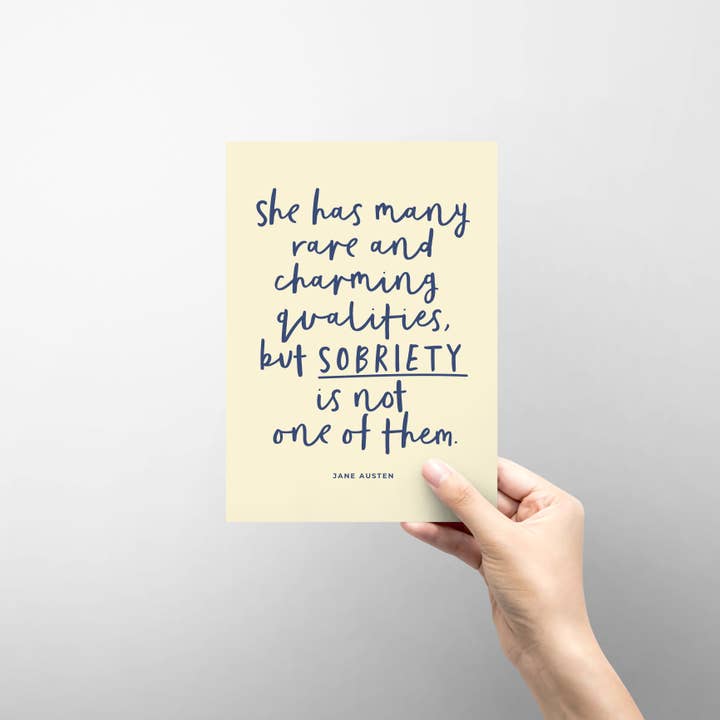 She has many
rare and
charming
qualities,
but SOBRIETY
is not
one of them.
JANE AUSTEN